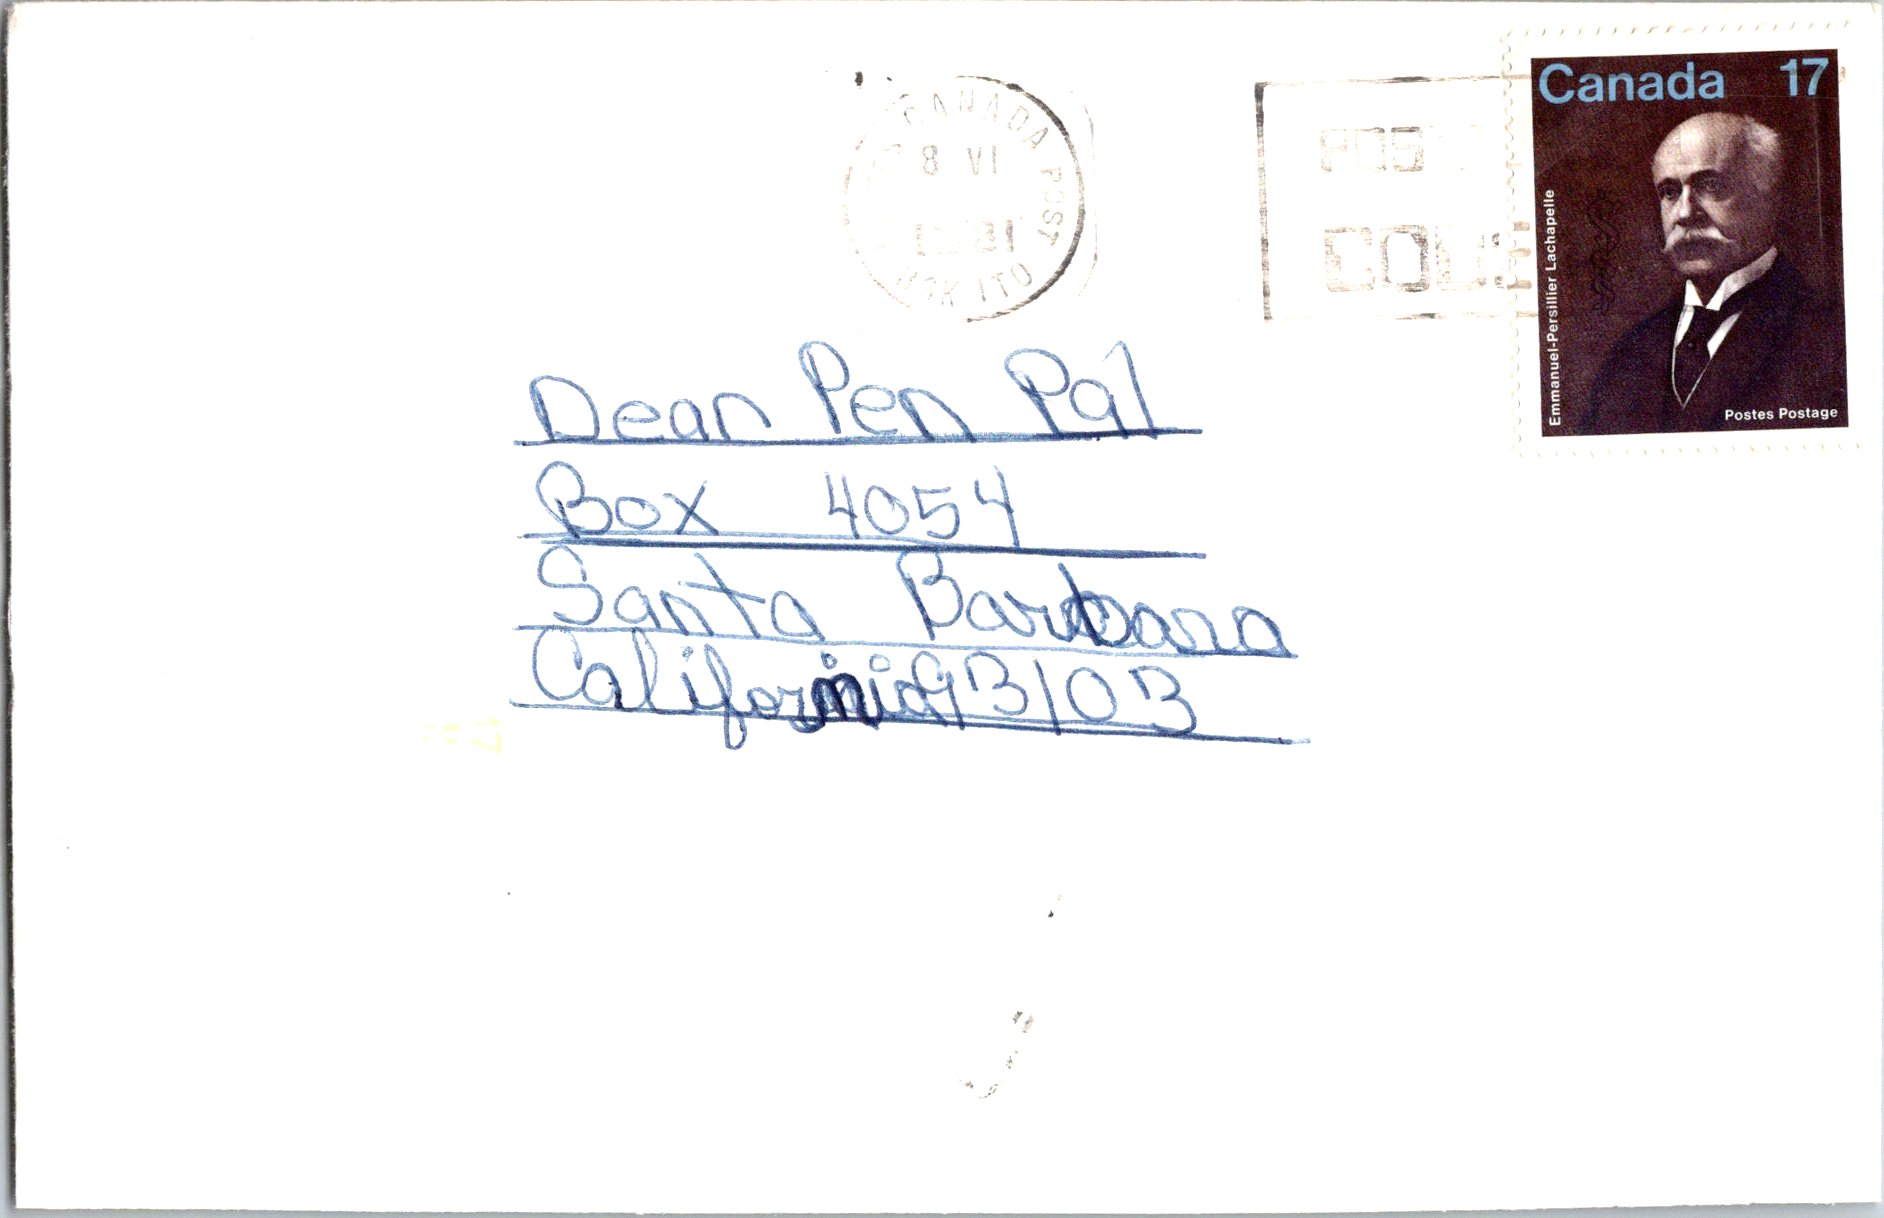 Canada 17
Emmanuel-Persillier Lachapelle
Postes Postage
CANADA POST
8 VI
1981
Dear Pen Pal
Box 4054
Santa Barbara
California 93103